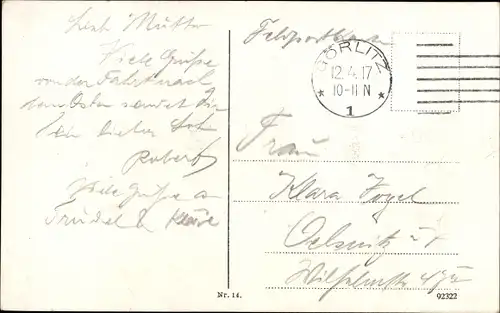 Liebe Mutter
Viele Grüße
von der Fahrt nach
dem Osten sendet Dir
Dein lieber Sohn
Robert
Viele Grüße an
Trudel u.
Feldpostkarte
GÖRLITZ
12.4.17
10-11 N
* 1 *
Frau
Klara Vogel
Oelsnitz i/V
Wilhelmstr
Nr. 14.
92322